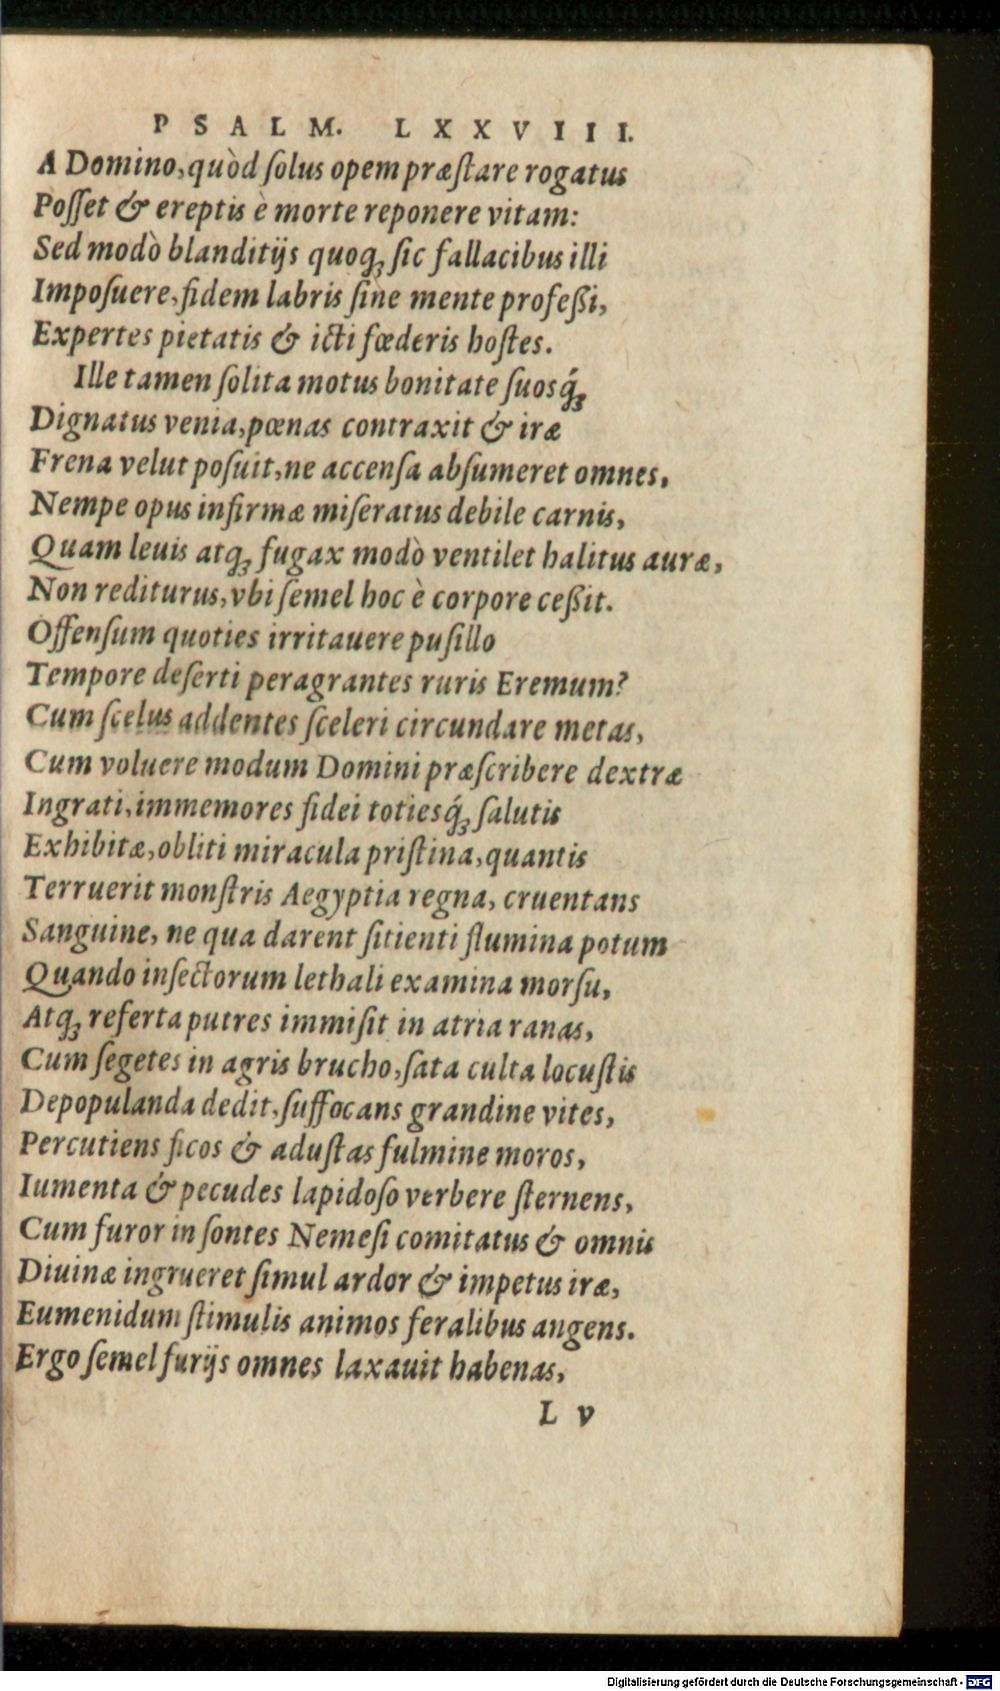 PSALM. LXXVIII.
A Domino, quòd ſolus opem præſtare rogatus
Poſſet & ereptis è morte reponere vitam:
Sed modò blanditijs quoq; ſic fallacibus illi
Impoſuere, fidem labris ſine mente profeßi,
Expertes pietatis & icti fœderis hoſtes.
Ille tamen ſolita motus bonitate ſuosq́;
Dignatus venia, pœnas contraxit & iræ
Frena velut poſuit, ne accenſa abſumeret omnes,
Nempe opus infirmæ miſeratus debile carnis,
Quam leuis atq; fugax modò ventilet halitus auræ,
Non rediturus, vbi ſemel hoc è corpore ceßit.
Offenſum quoties irritauere puſillo
Tempore deſerti peragrantes ruris Eremum?
Cum ſcelus addentes ſceleri circundare metas,
Cum voluere modum Domini præſcribere dextræ
Ingrati, immemores fidei totiesq́; ſalutis
Exhibitæ, obliti miracula priſtina, quantis
Terruerit monſtris Aegyptia regna, cruentans
Sanguine, ne qua darent ſitienti flumina potum
Quando inſectorum lethali examina morſu,
Atq; referta putres immiſit in atria ranas,
Cum ſegetes in agris brucho, ſata culta locuſtis
Depopulanda dedit, ſuffocans grandine vites,
Percutiens ficos & aduſtas fulmine moros,
Iumenta & pecudes lapidoſo verbere ſternens,
Cum furor in ſontes Nemeſi comitatus & omnis
Diuinæ ingrueret ſimul ardor & impetus iræ,
Eumenidum ſtimulis animos feralibus angens.
Ergo ſemel furijs omnes laxauit habenas,
L v
Digitalisierung gefördert durch die Deutsche Forschungsgemeinschaft - DFG